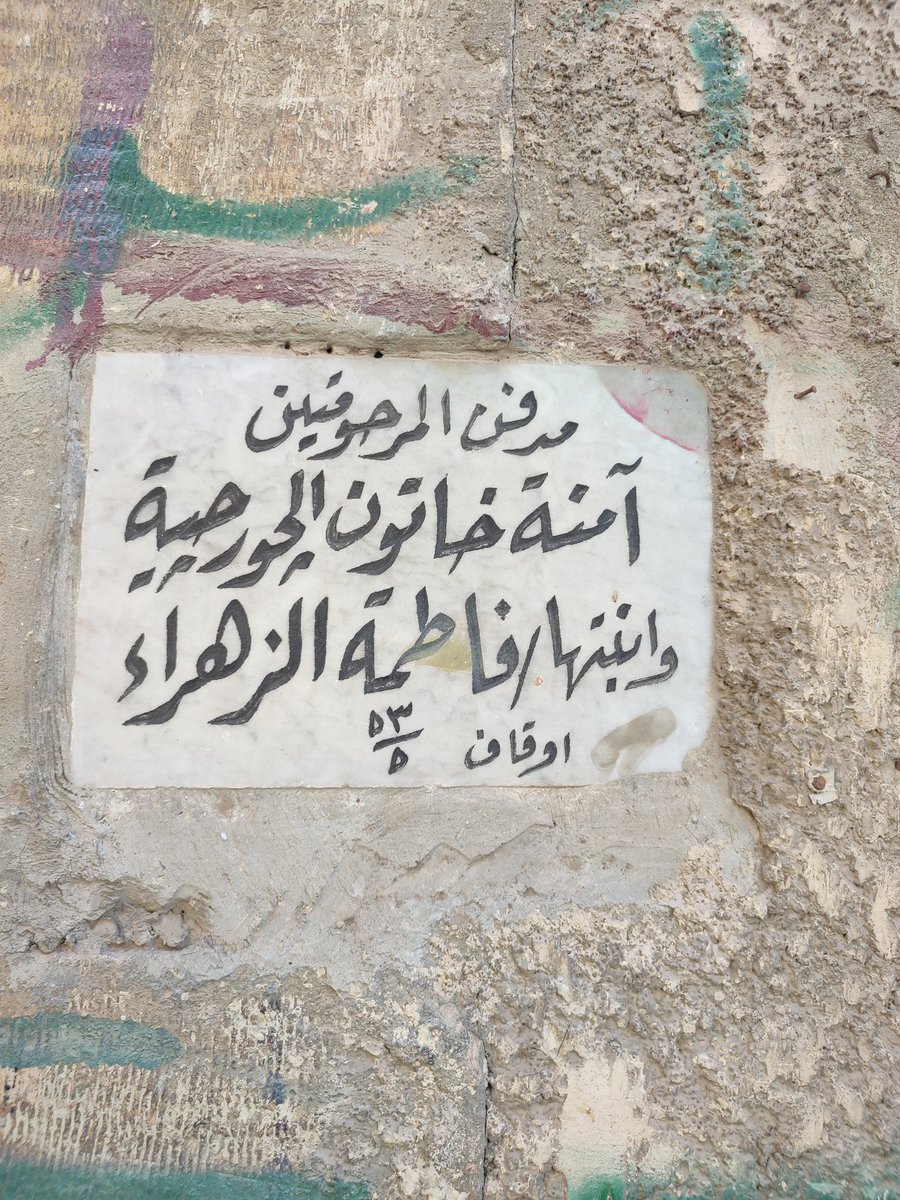 مدفن المرحومتين
آمنة خاتون الچورچية
وابنتها/فاطمة الزهراء
اوقاف ٥٣/٥